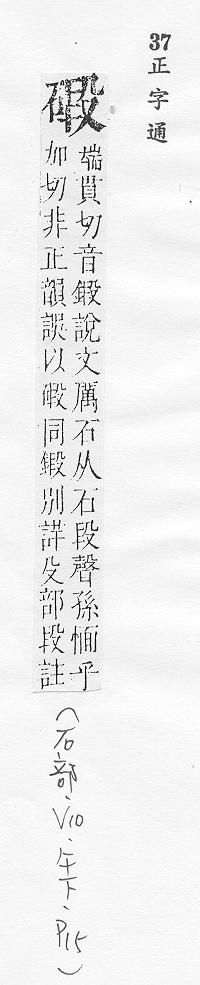 37 正字通
碫
端貫切音鍛說文厲石从石段聲孫愐乎
加切非正韻誤以碫同鍛別詳殳部段註
(石部、V10、午下、P15)